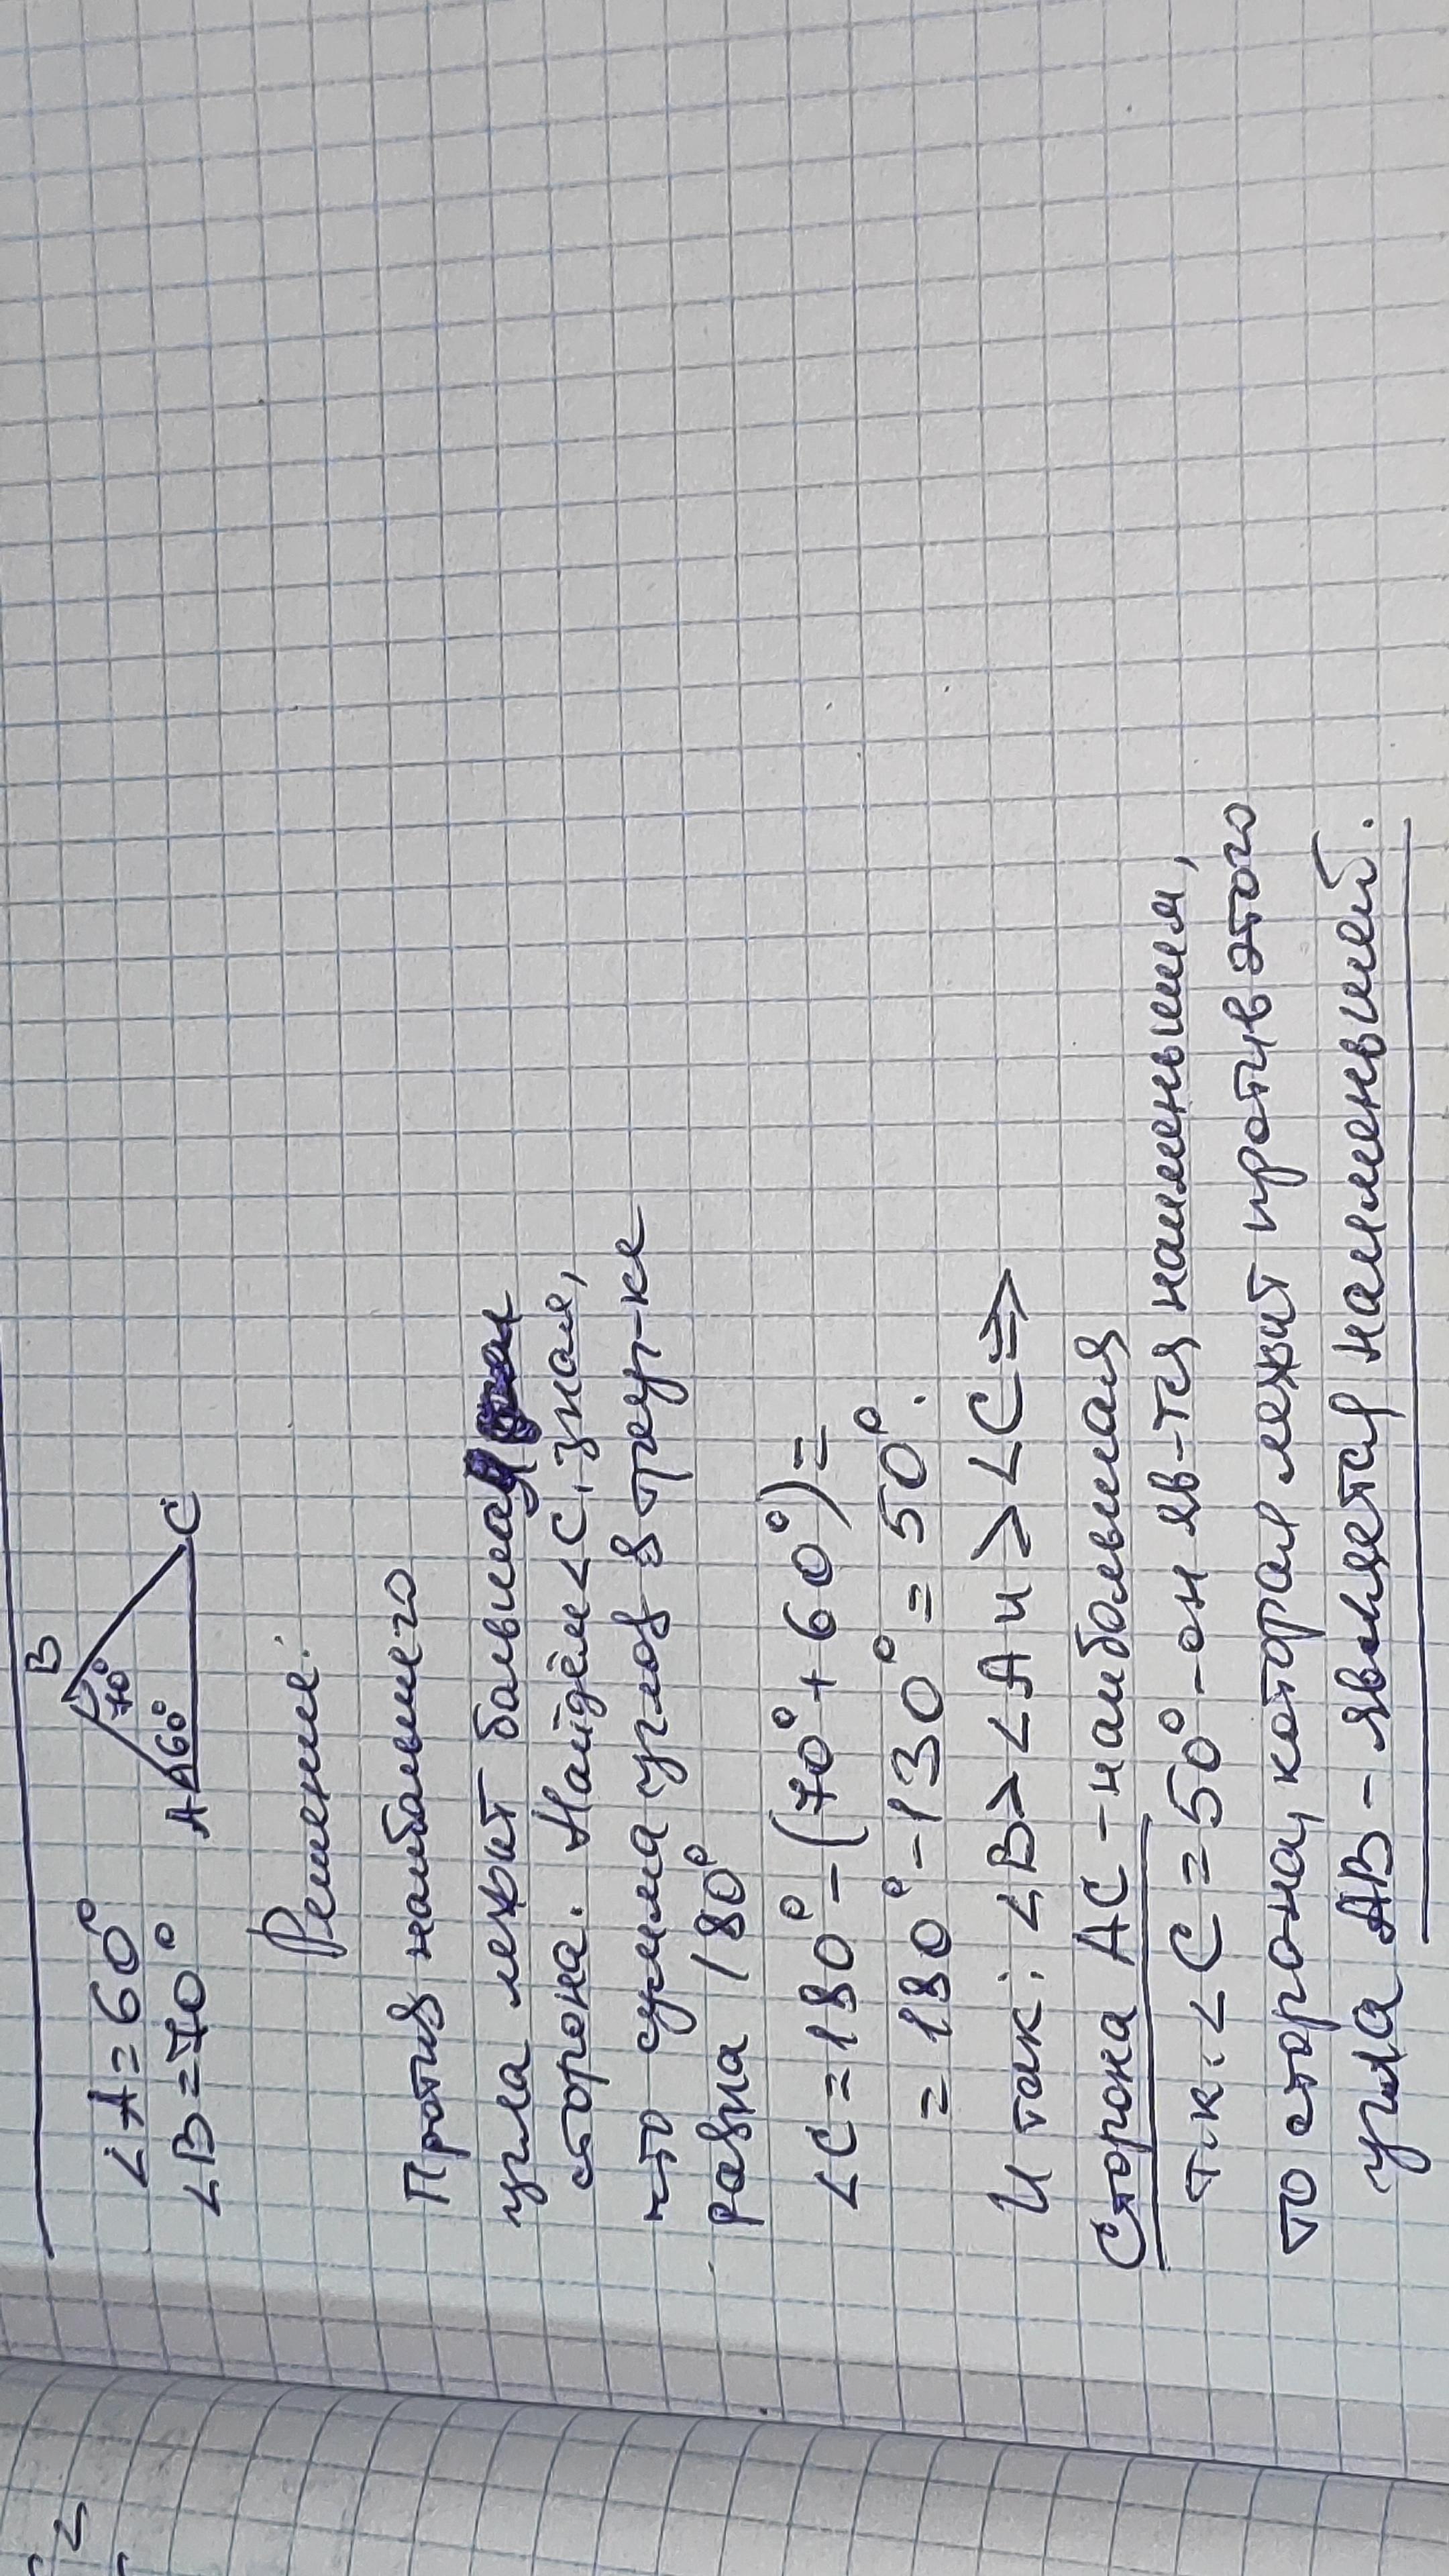 ∠A=60°
∠B=70°
B
70°
A 60° C
Решение:
Против наибольшего
угла лежит большая
сторона. Найдём ∠C, зная,
что сумма углов в треу-ке
равна 180°
∠C=180°-(70°+60°)=
=180°-130°=50°.
И так: ∠B>∠A и >∠C⇒
Сторона AC-наибольшая
т.к. ∠C=50°-он яв-тся наименьшим,
то сторона, которая лежит против этого
угла AB-является наименьшей.